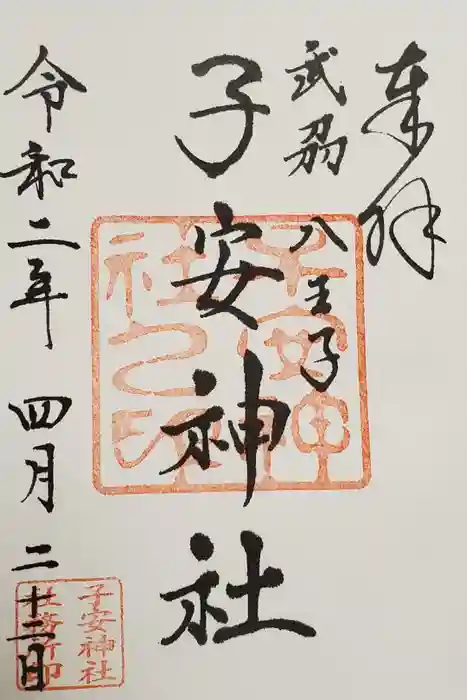 奉拝
武刕 八王子
子安神社
令和二年 四月 二十二日
子安神社之印
子安神社
社務所印